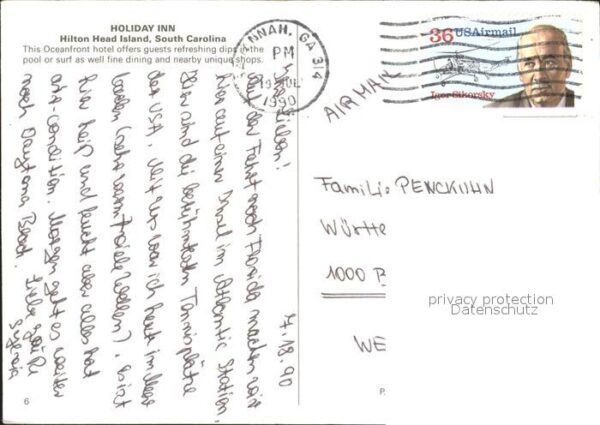 HOLIDAY INN
Hilton Head Island, South Carolina
This Oceanfront hotel offers guests refreshing dips in the
pool or surf as well fine dining and nearby unique shops.
SAVANNAH, GA 314
PM
1990
36 USAirmail
Igor Sikorsky
AIRMAIL
7.18.90
Ihr Lieben!
Auf der Fahrt nach Florida machen wir
hier auf einer Insel im Atlantic Station.
Hier sind die berühmtesten Tennisplätze
der USA. Mit uns war ich heute im Meer
baden (sehr warm + viele Wellen). Es ist
hier heiß und feucht aber alles hat
air-condition. Morgen geht es weiter
nach Daytona Beach. Liebe Grüße
Sylvia
Familie PENCKUHN
Württe
1000 B
WE
privacy protection
Datenschutz
6
P.